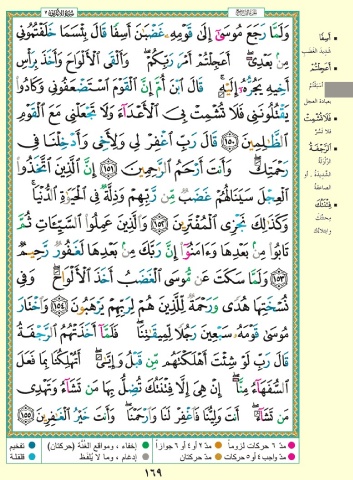 وَلَمَّا رَجَعَ مُوسَىٰٓ إِلَىٰ قَوْمِهِۦ غَضْبَٰنَ أَسِفًا قَالَ بِئْسَمَا خَلَفْتُمُونِى
مِنۢ بَعْدِىٓ ۖ أَعَجِلْتُمْ أَمْرَ رَبِّكُمْ ۖ وَأَلْقَى ٱلْأَلْوَاحَ وَأَخَذَ بِرَأْسِ
أَخِيهِ يَجُرُّهُۥٓ إِلَيْهِ ۚ قَالَ ٱبْنَ أُمَّ إِنَّ ٱلْقَوْمَ ٱسْتَضْعَفُونِى وَكَادُوا۟
يَقْتُلُونَنِى فَلَا تُشْمِتْ بِىَ ٱلْأَعْدَآءَ وَلَا تَجْعَلْنِى مَعَ ٱلْقَوْمِ
ٱلظَّٰلِمِينَ ١٥٠ قَالَ رَبِّ ٱغْفِرْ لِى وَلِأَخِى وَأَدْخِلْنَا فِى
رَحْمَتِكَ ۖ وَأَنتَ أَرْحَمُ ٱلرَّٰحِمِينَ ١٥١ إِنَّ ٱلَّذِينَ ٱتَّخَذُوا۟
ٱلْعِجْلَ سَيَنَالُهُمْ غَضَبٌ مِّن رَّبِّهِمْ وَذِلَّةٌ فِى ٱلْحَيَوٰةِ ٱلدُّنْيَا ۚ
وَكَذَٰلِكَ نَجْزِى ٱلْمُفْتَرِينَ ١٥٢ وَٱلَّذِينَ عَمِلُوا۟ ٱلسَّيِّـَٔاتِ ثُمَّ
تَابُوا۟ مِنۢ بَعْدِهَا وَءَامَنُوٓا۟ إِنَّ رَبَّكَ مِنۢ بَعْدِهَا لَغَفُورٌ رَّحِيمٌ
١٥٣ وَلَمَّا سَكَتَ عَن مُّوسَى ٱلْغَضَبُ أَخَذَ ٱلْأَلْوَاحَ ۖ وَفِى
نُسْخَتِهَا هُدًى وَرَحْمَةٌ لِّلَّذِينَ هُمْ لِرَبِّهِمْ يَرْهَبُونَ ١٥٤ وَٱخْتَارَ
مُوسَىٰ قَوْمَهُۥ سَبْعِينَ رَجُلًا لِّمِيقَٰتِنَا ۖ فَلَمَّآ أَخَذَتْهُمُ ٱلرَّجْفَةُ
قَالَ رَبِّ لَوْ شِئْتَ أَهْلَكْتَهُم مِّن قَبْلُ وَإِيَّٰىَ ۖ أَتُهْلِكُنَا بِمَا فَعَلَ
ٱلسُّفَهَآءُ مِنَّآ ۖ إِنْ هِىَ إِلَّا فِتْنَتُكَ تُضِلُّ بِهَا مَن تَشَآءُ وَتَهْدِى
مَن تَشَآءُ ۖ أَنتَ وَلِيُّنَا فَٱغْفِرْ لَنَا وَٱرْحَمْنَا ۖ وَأَنتَ خَيْرُ ٱلْغَٰفِرِينَ ١٥٥
أَسِفًا
شديد الغضب
أَعَجِلْتُمْ
بعبادة العجل
فَلَا تُشْمِتْ
فلا تسرّ
الرَّجْفَةُ
الزلزلة
الشديدة ، أو
الصاعقة
فِتْنَتُكَ
محنتك
وابتلاؤك
مدّ ٦ حركات لزوماً
مدّ ٢ أو ٤ أو ٦ جوازاً
إخفاء ، ومواقع الغُنَّة (حركتان)
تفخيم
مدّ واجب ٤ أو ٥ حركات
مدّ حركتان
إدغام ، وما لا يُلفَظ
قلقلة
١٦٩